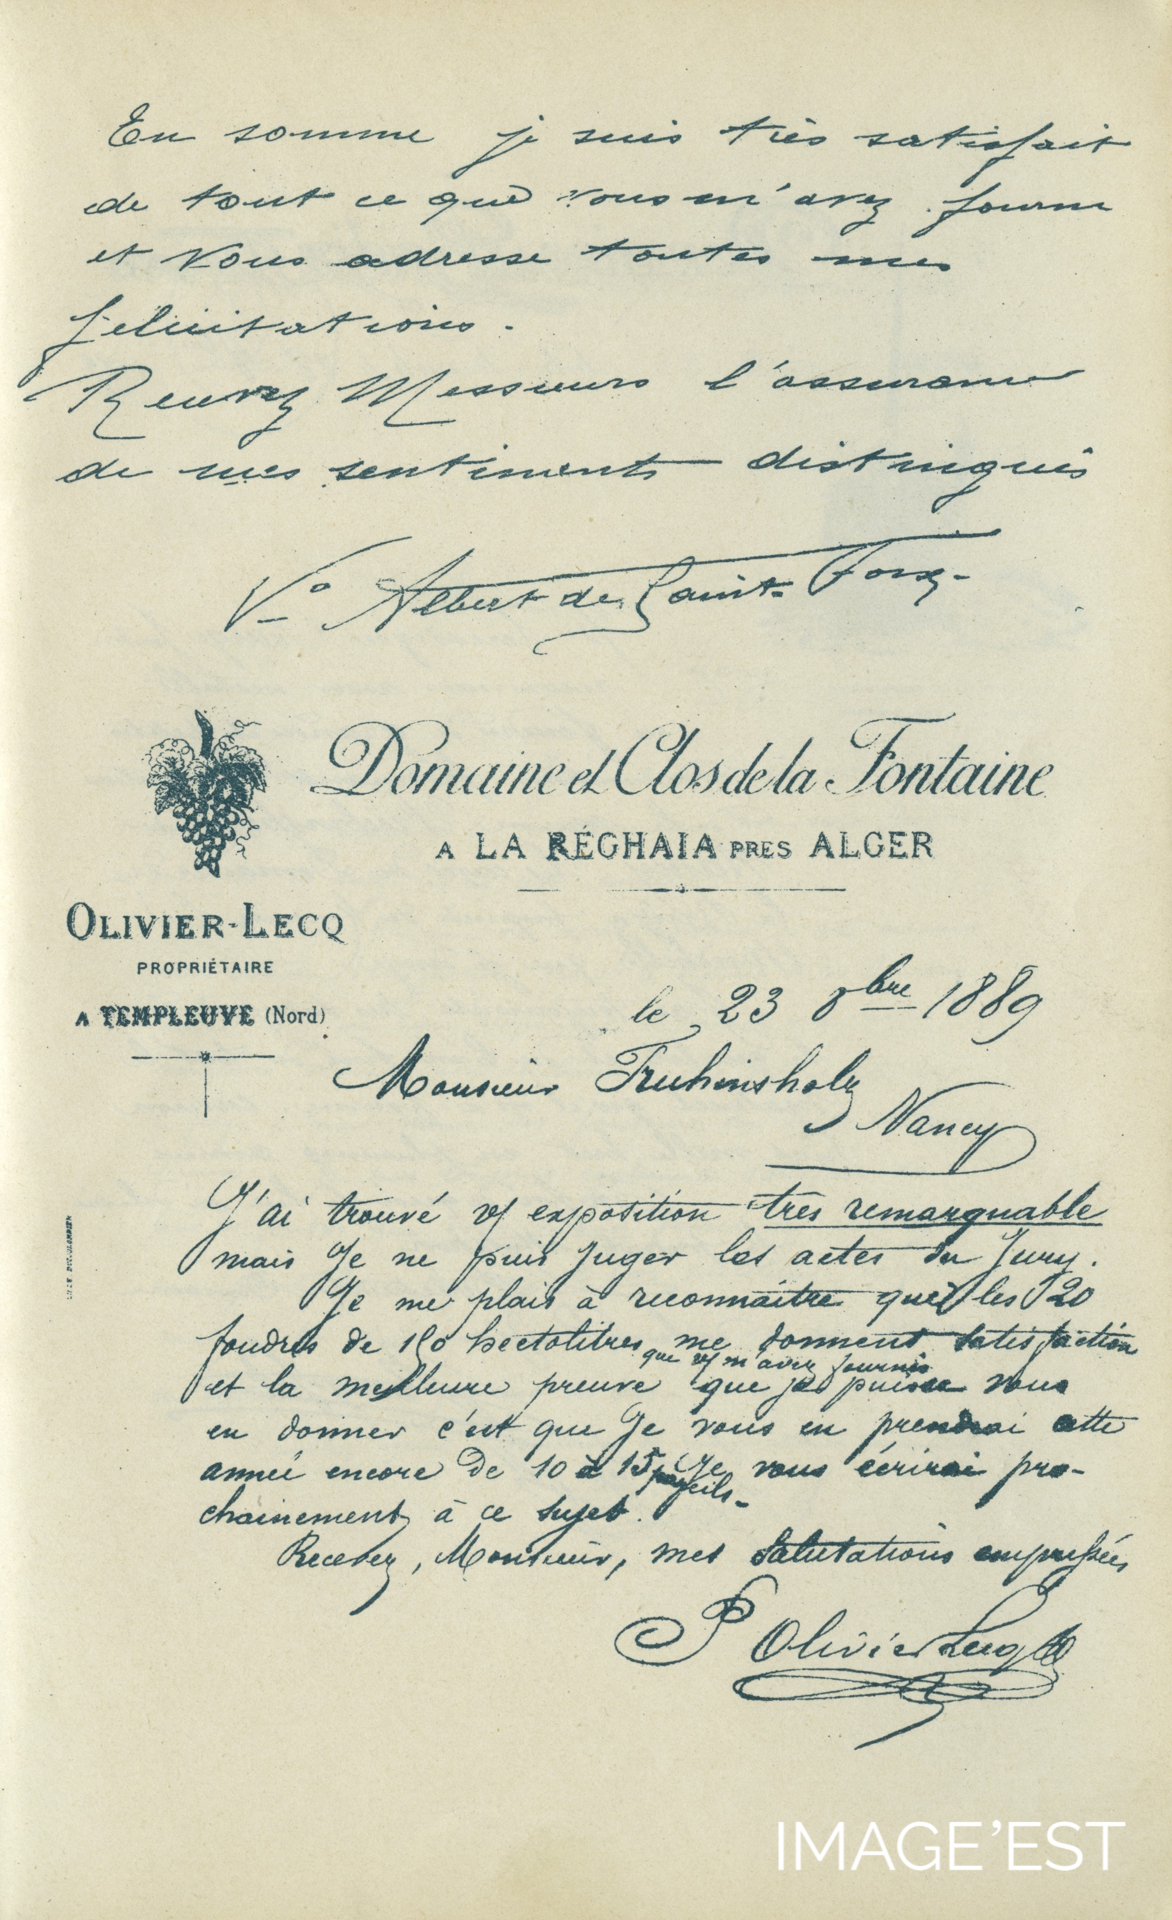 En somme je suis très satisfait
de tout ce que vous m'avez fourni
et vous adresse toutes mes
félicitations.
Recevez Messieurs l'assurance
de mes sentiments distingués
Vte Albert de Saint-
Domaine et Clos de la Fontaine
A LA RÉGHAIA PRES ALGER
OLIVIER-LECQ
PROPRIÉTAIRE
A TEMPLEUVE (Nord)
le 23 8bre 1889
Monsieur Fruhinsholz
Nancy
J'ai trouvé vf exposition très remarquable
mais Je ne puis Juger les actes du Jury.
Je me plais à reconnaitre que les 20
foudres de 150 hectolitres me donnent satisfaction
que vs m'avez fournis
et la meilleure preuve que je puisse vous
en donner c'est que Je vous en prendrai cette
année encore de 10 à 15 pareils. Je vous écrirai pro-
chainement à ce sujet.
Recevez, Monsieur, mes salutations empressées
P Olivier Lecq
IMAGE'EST